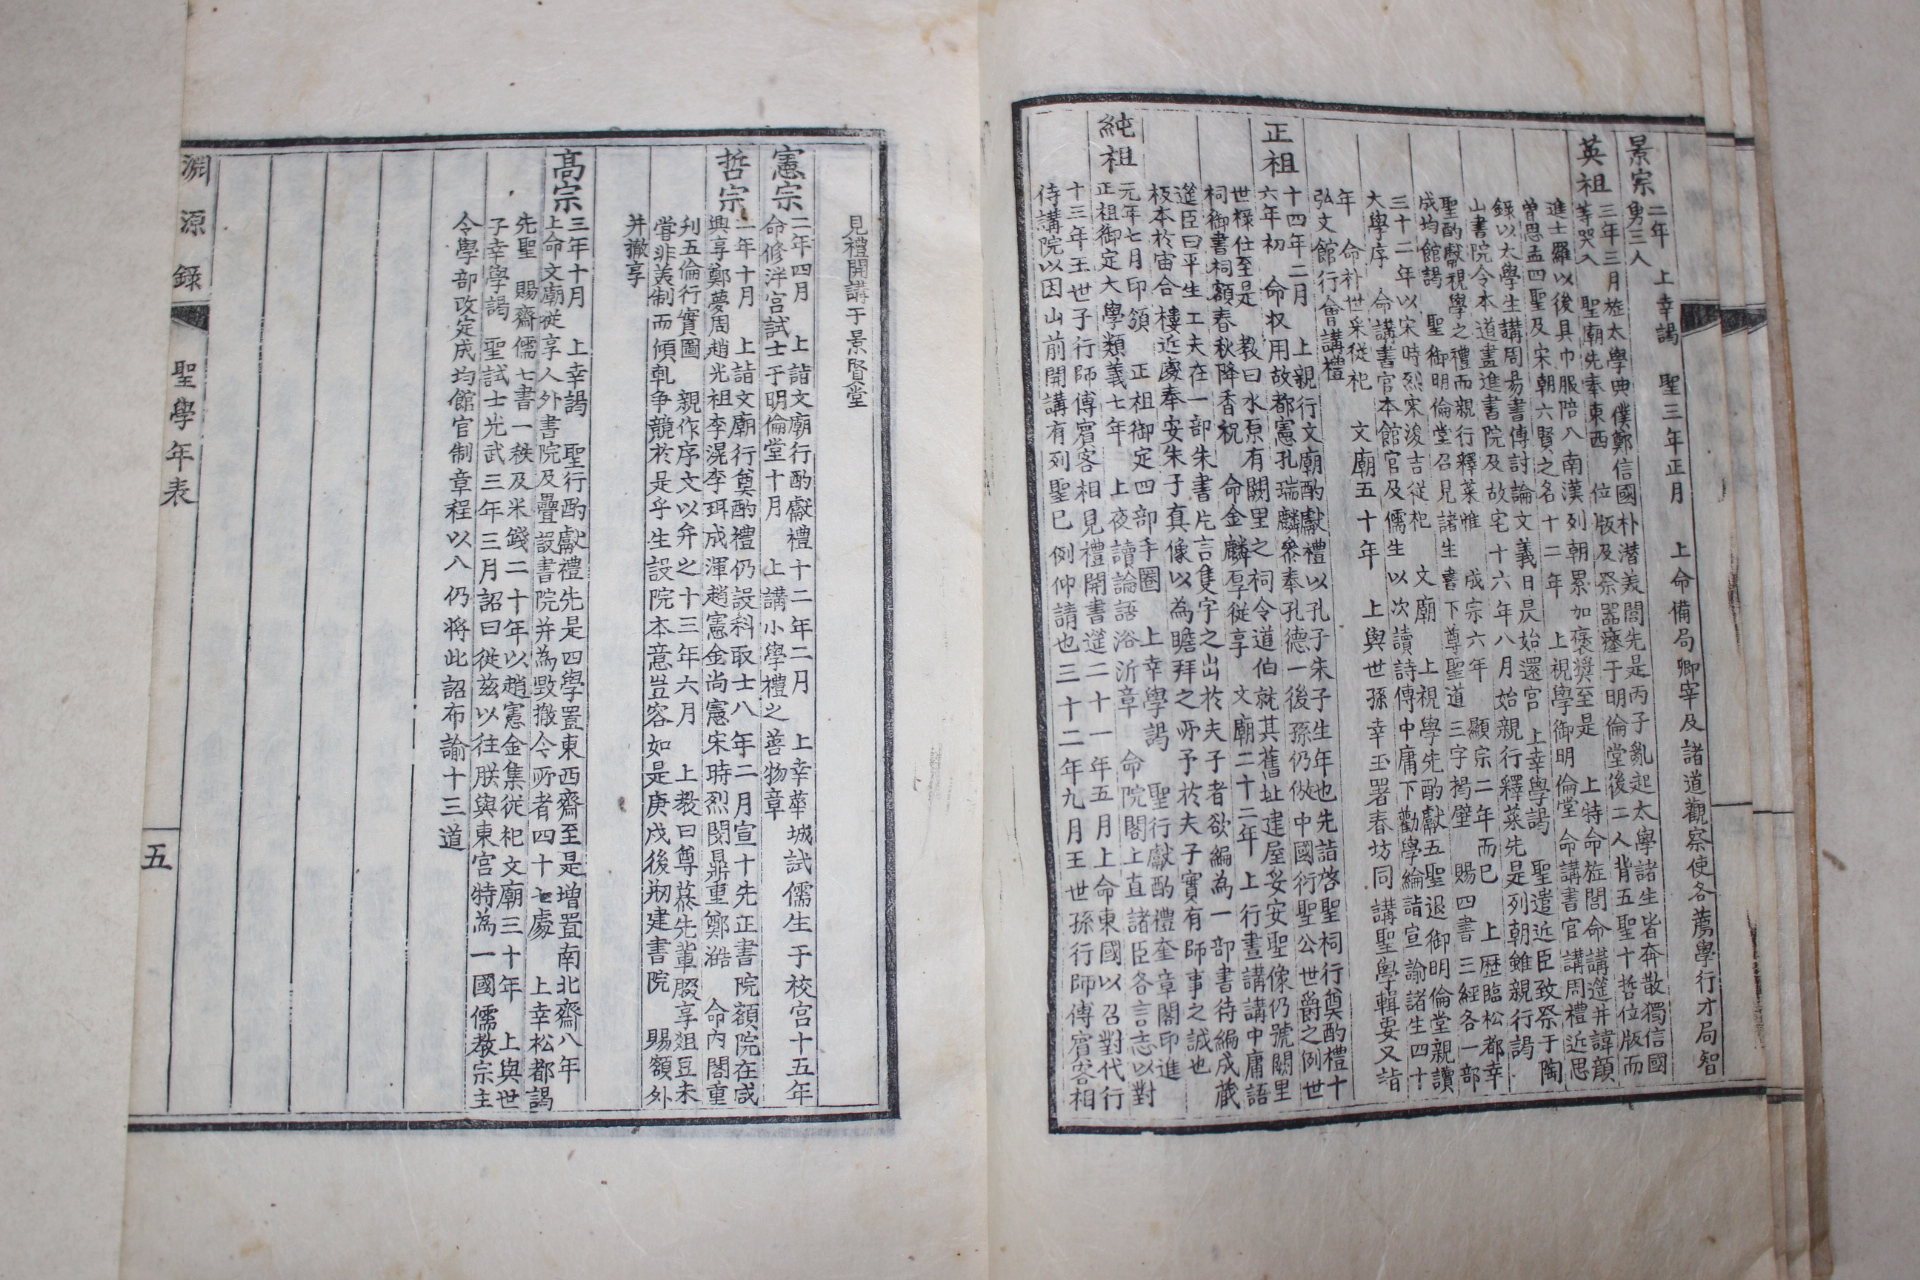 景宗
二年 上幸謁 聖三年正月 上命備局卿宰及諸道觀察使各薦學行才局智
勇三人
英祖
三年三月旌太學典僕鄭信國朴潛美閭先是丙子亂起太學諸生皆奔散獨信國
等哭入 聖廟先奉東西 位版及祭器瘞于明倫堂後二人背五聖十哲位版而
進士羅以後具巾服陪入南漢列朝累加褒奬至是 上特命旌閭命講筵幷諱顔
曾思孟四聖及宋朝六賢之名十二年 上視學御明倫堂命講書官講周禮近思
錄以太學生講周易書傳討論文義日昃始還宮 上幸學謁 聖遣近臣致祭于陶
山書院令本道盡進書院及故宅十六年八月始親行釋菜先是列朝雖親行謁
聖酌獻視學之禮而親行釋菜惟 成宗六年 顯宗二年而已 上歷臨松都幸
成均館謁 聖御明倫堂召見諸生書下尊聖道三字揭壁 賜四書三經各一部
三十二年以宋時烈宋浚吉從祀 文廟 上視學先酌獻五聖退御明倫堂親讀
大學序 命講書官本館官及儒生以次讀詩傳中庸下勸學綸諭宣諭諸生四十
年 命朴世采從祀 文廟五十年 上與世孫幸玉署春坊同講聖學輯要又詣
弘文館行會講禮
正祖
十四年二月 上親行文廟酌獻禮以孔子朱子生年也先詣啓聖祠行奠酌禮十
六年初 命收用故都憲孔瑞麟叅奉孔德一後孫仍倣中國衍聖公世爵之例世
世祿仕至是 敎曰水原有闕里之祠令道伯就其舊址建屋妥安聖像仍號闕里
祠御書祠額春秋降香祝 命金麟厚從享 文廟二十二年上行晝講講中庸語
筵臣曰平生工夫在一部朱書片言隻字之出於夫子者欲編為一部書待編成藏
板本於宙合樓近處奉安朱子眞像以為瞻拜之所予於夫子實有師事之誠也
純祖
元年七月印頒 正祖御定四部手圈 上幸學謁 聖行獻酌禮奎章閣印進
正祖御定大學類義七年 上夜讀論語浴沂章 命院閣上直諸臣各言志以對
十三年王世子行師傅賓客相見禮開書筵二十一年五月上命東國以召對代行
侍講院以因山前開講有列聖已例仰請也三十二年九月王世孫行師傅賓客相
見禮開講于景賢堂
憲宗
二年四月 上詣文廟行酌獻禮十二年二月 上幸華城試儒生于校宮十五年
命修泮宮試士于明倫堂十月 上講小學禮之善物章
哲宗
二年十月 上詣文廟行奠酌禮仍設科取士八年二月宣十先正書院額院在咸
興享鄭夢周趙光祖李滉李珥成渾趙憲金尙憲宋時烈閔鼎重鄭澔 命內閣重
刋五倫行實圖 親作序文以弁之十三年六月 上敎曰尊慕先輩腏享俎豆未
嘗非美制而傾軋爭競於是乎生設院本意豈容如是庚戌後刱建書院 賜額外
幷撤享
高宗
三年十月 上幸謁 聖行酌獻禮先是四學置東西齋至是增置南北齋八年
上命文廟從享人外書院及疊設書院幷為毁撤今所者四十七處 上幸松都謁
先聖 賜齋儒七書一秩及米錢二十年以趙憲金集從祀文廟三十年 上與世
子幸學謁 聖試士光武三年三月詔曰從玆以往朕與東宮特為一國儒敎宗主
令學部改定成均館官制章程以入仍将此詔布諭十三道
淵源錄 聖學年表 五